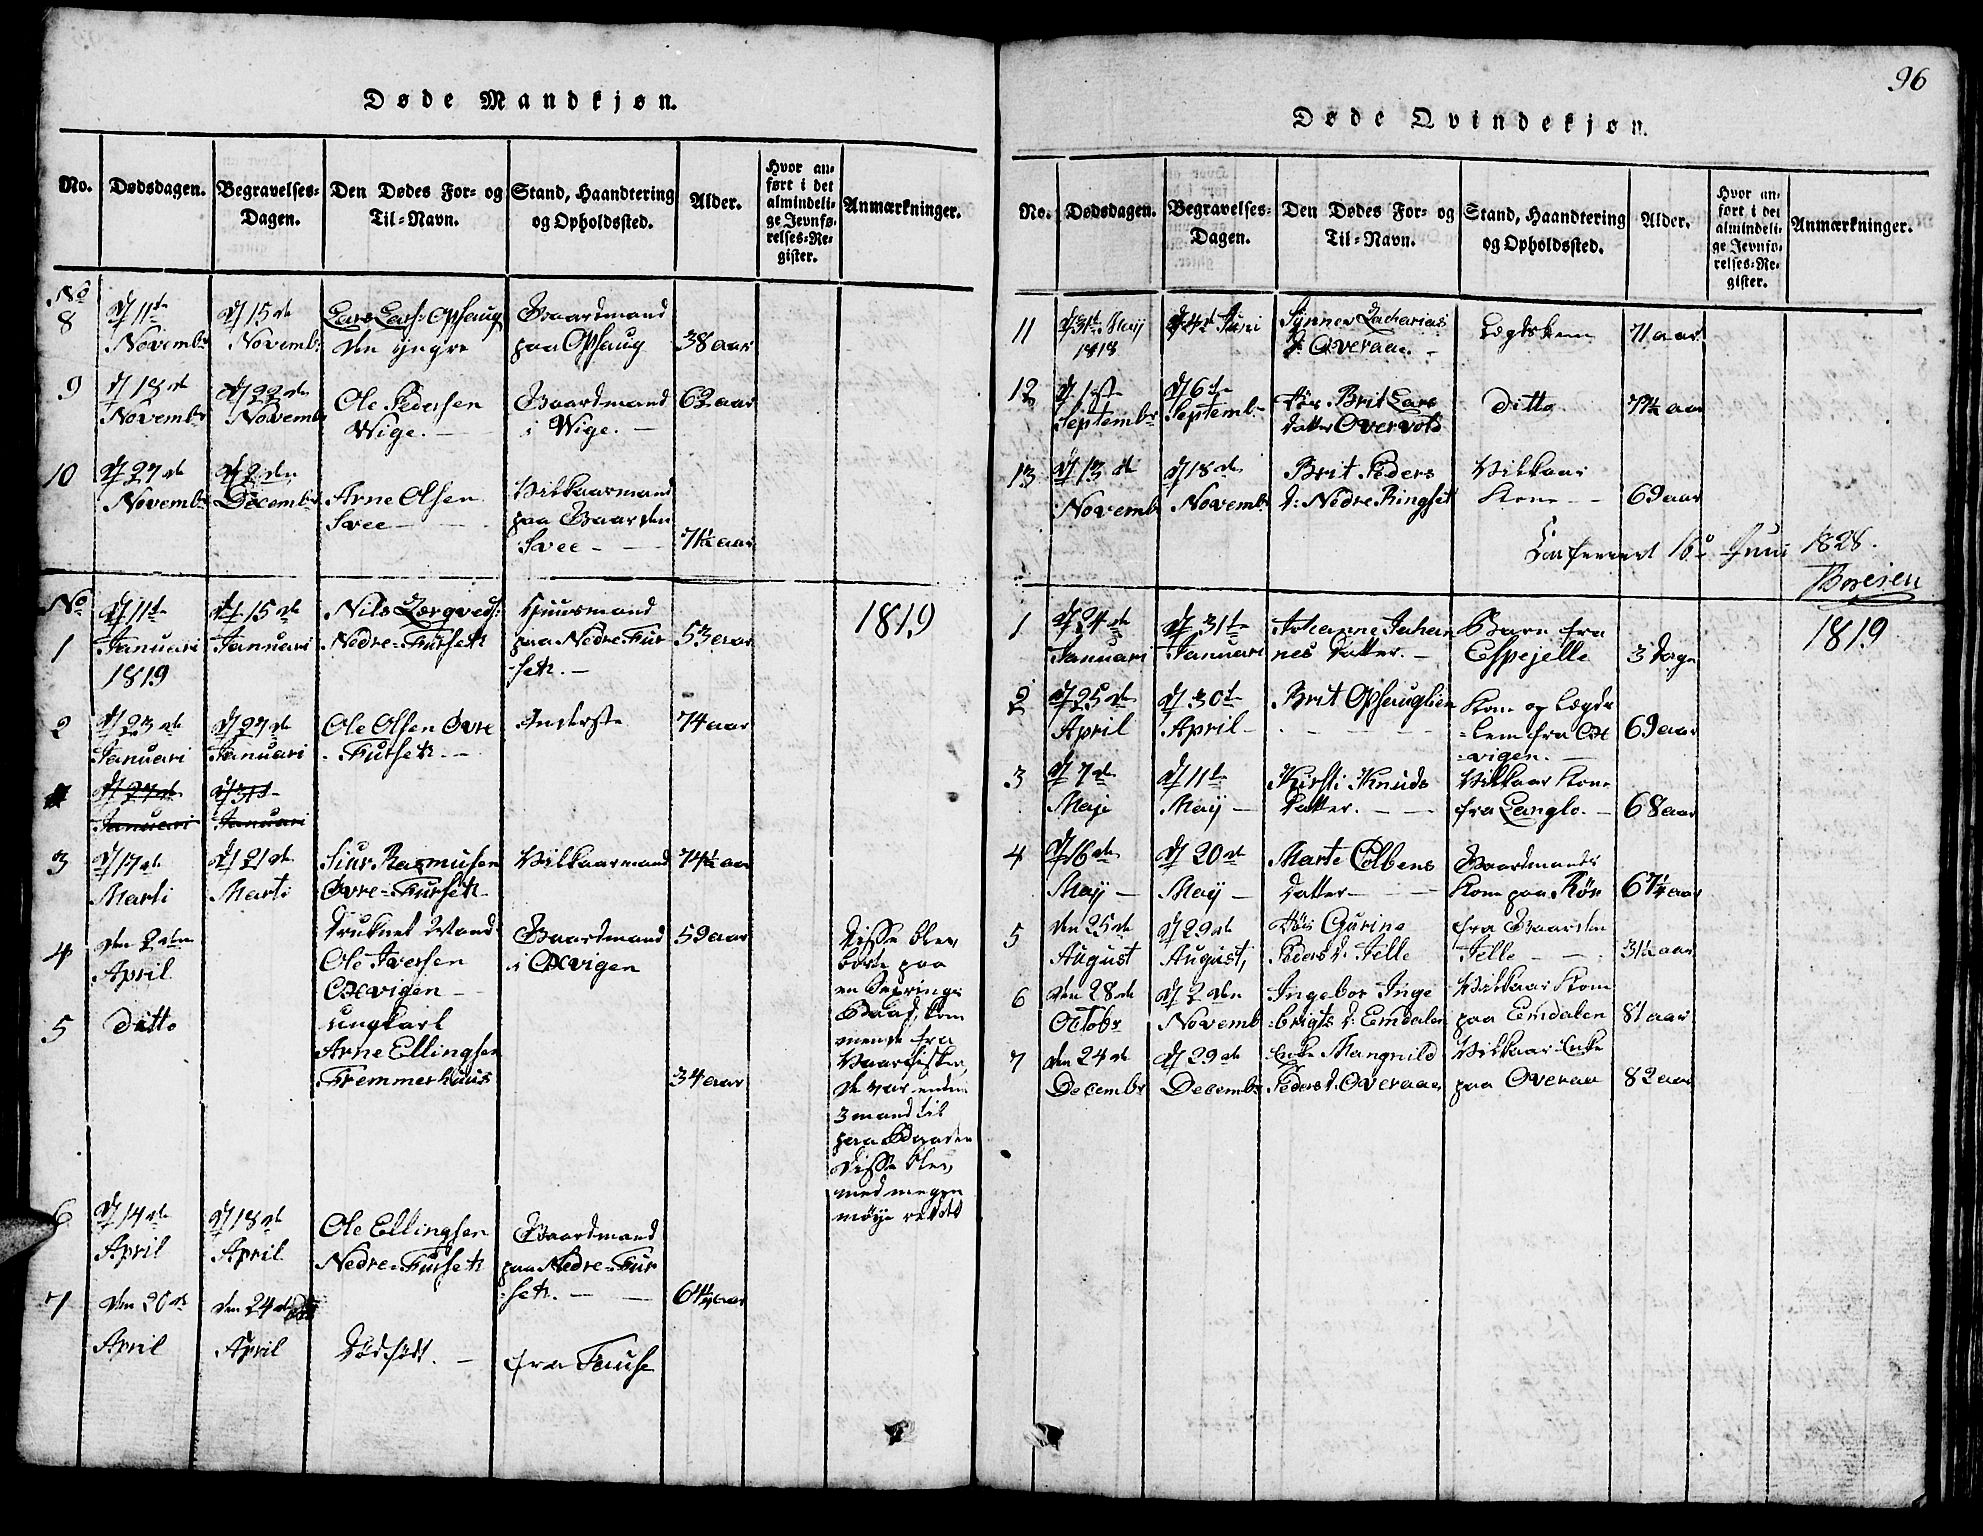 96
Døde Mandkjøn.
No. Dødsdagen. Begravelses-Dagen. Den Dødes For- og Til-Navn. Stand, Haandtering og Opholdssted. Alder. Hvor anført i det almindelige Jevnførelses-Register. Anmærkninger.
No 8 d 11te Novembr d 15de Novembr Lars Lars: Opsaug den yngre Gaardmand paa Opsaug 38 aar
9 d 18de Novembr d 22de Novembr Ole Pedersen Wige. Gaardmand i Wige. 62 aar
10 d 27de Novembr d 2den Decembr Arne Olsen Svee Vilkaarmand paa Gaarden Svee 71½ aar
No 1 d 11te Januari 1819 d 15de Januari Nils Nedre-Furseth Huusmand paa Nedre Furseth. 53 aar 1819
2 d 23de Januari d 27de Januari Ole Olsen Øvre Furseth. Inderste 74 aar
d 27de Januari d 31te Januari
3 d 17de Marti d 21de Marti Siur Rasmusen Øvre-Furseth Vilkaarmand 74½ aar
4 den 2den April Druknet Mand Ole Iversen Oxvigen Gaardmand i Oxvigen 59 aar
Disse blev borte paa en Baad, kommende fra Vaarfisket, de var enda 3 mand til paa Baaden Disse blev med megen møye reddet
5 Ditto ungkarl Arne Ellingsen Fremmerhuus 34 aar
6 d 14de April d 18de April Ole Ellingsen Nedre-Furseth Gaardmand paa Nedre-Furseth. 64¼ aar
7 den 20de April den 24de April Dødfødt. fra Tause
Døde Qvindekjøn.
No. Dødsdagen. Begravelses-Dagen. Den Dødes For- og Til-Navn. Stand, Haandtering og Opholdssted. Alder. Hvor anført i det almindelige Jevnførelses-Register. Anmærkninger.
11 d 31te Maij 1818 Juni Synnev Zacharias D: Overaae. Lægdslem 71 aar
12 d 1ste Septembr d 6te Septembr Brit Lars datter Overvold Ditto 77½ aar
13 d 13de Novemb d 18de Novembr Brit Peders D: Nedre Ringset Vilkaar Kone 69 aar
Confereret 16 Juni 1828.
1 d 24de Januari d 31te Januari Johanne Johannes Datter. Barn fra Espejelle 3 Dage 1819
2 d 25de April d 30te April Brit Opsauglien Kone og Lægdslem fra Oxvigen. 69 aar
3 d 7de Maje d 11te May Kirsti Knuds Datter. Vilkaar Kone fra Langlo. 68 aar
4 d 16de May d 20de May Marte Colbens Datter Gaardmands Kone paa Rør 67¼ aar
5 den 25de August d 29de August, Gurine Peders D. Jelle fra Gaarden Jelle 31½ aar
6 den 28de Octobr d 2den Novemb Ingebor Ingebrigts D: Emdalen Vilkaar Kone paa Emdalen 81 aar
7 den 24de Decembr d 29de Decembr Enke Mangnild Peders D. Overaae, Vilkaar Enke paa Overaa 82 aar